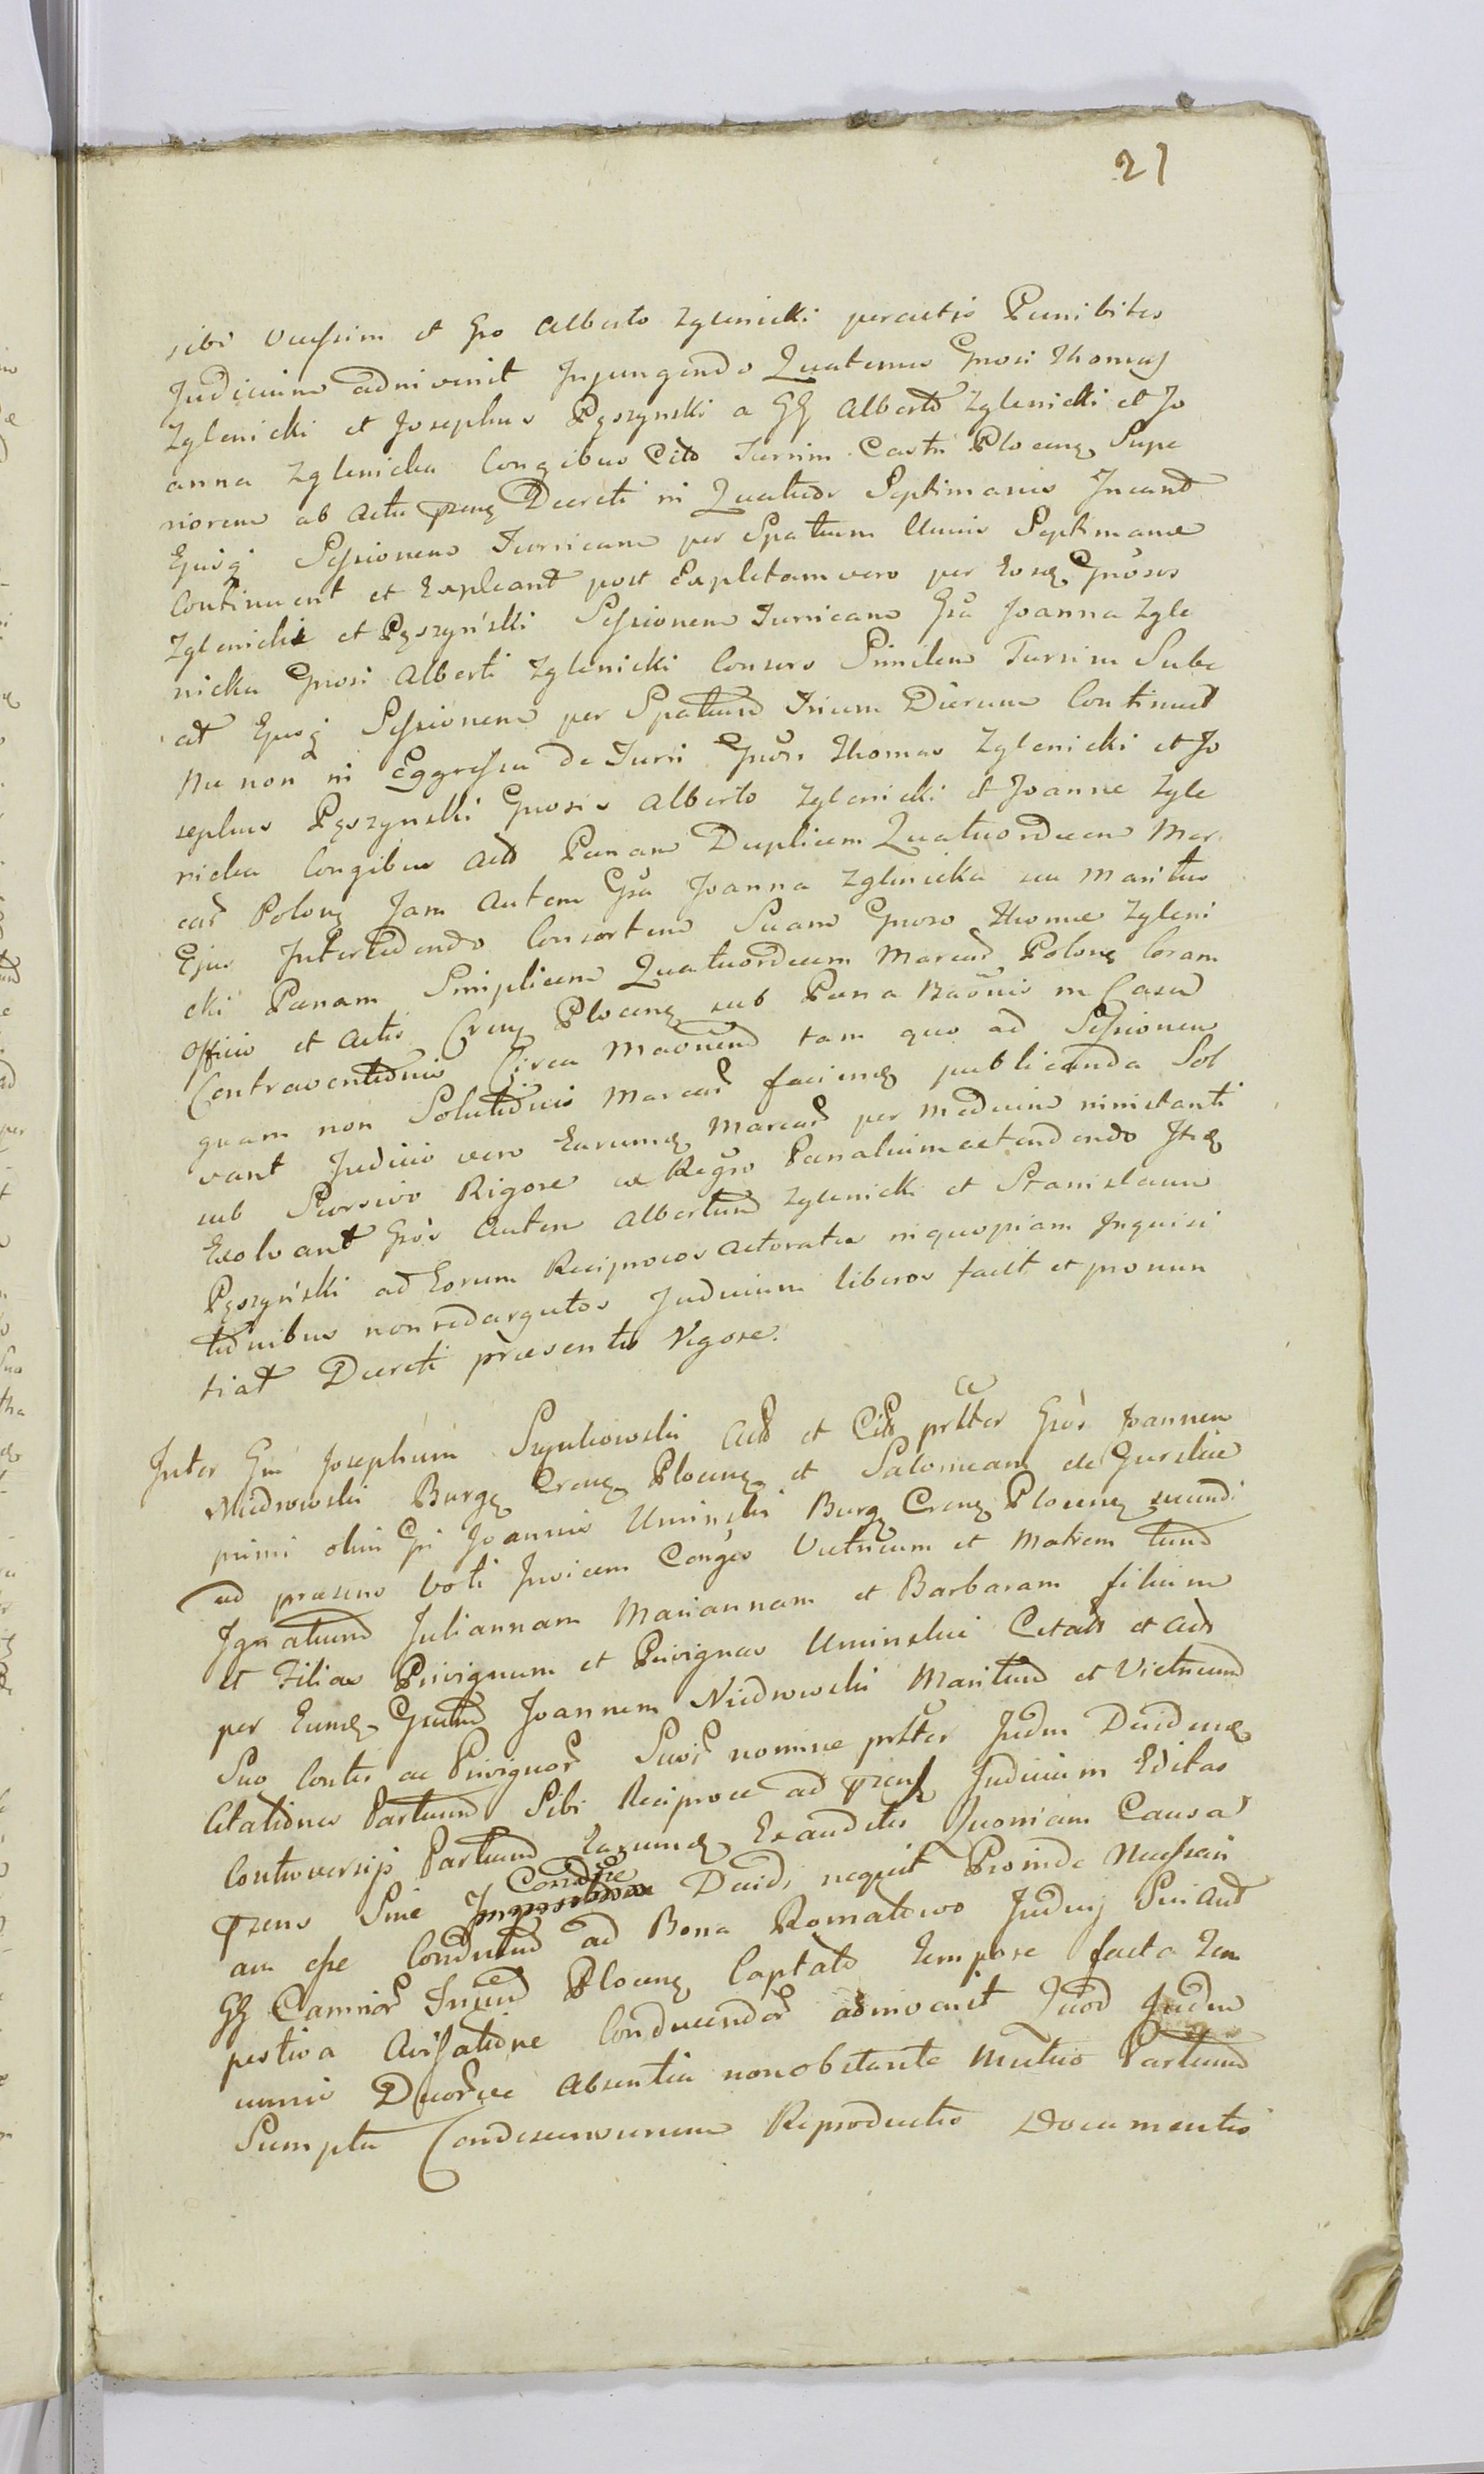 21
sibi vicissim et Gso Alberto Zglenicki percutis Punibiles
Judicium adinvenit Injungendo Quatenus Gnosi Thomas
Zglenicki et Josephus Pęszynski a GG Alberto Zglenicki et Jo
anna Zglenicka Congibus Cito Turrim Castri Plocenę Supe
riorem ab actu pzenę Decreti in Quatuor Septimanis Incant
Ejusq Sessionem Turricam per Spatium Unius Septimanæ
Continuent et Expleant post Expletam vero per Eosdę Gnosos
Zglenicki et Pęszyński Sessionem Turricam Gsa Joanna Zgle
nicka Gnosi Alberti Zglenicki Consors Similem Turrim Sube
at Ejusq Sessionem per Spatium Trium Dierum Continuet
Nec non in Eggressu de Turri Gnosi Thomas Zglenicki et Jo
sephus Pęszynski Gnosis Alberto Zglenicki et Joanne Zgle
nicka Congibus Acto Pœnam Duplicem Quatuordecem Mar
car Polonę Jam Autem Gsa Joanna Zglenicka seu Maritus
Ejus Intercedendo Consortem Suam Gnoso Thomæ Zgleni
cki Pœnam Simplicem Quatuordecem Marcar Polonę Coram
Officio et Actis Crenę Plocenę sub Pœna Baönis in Casu
Contraventionis Circa Maönend tam quo ad Sessionem
quam non Solutionis Marcar facienę publicanda Sol
vant Judicio vero Earumdę Marcar per Medium ninistanti
sub Peorsivo Rigore ex Regro Pœnalium extendendo Itidę
Exolvant Gsos Autem Albertum Zglenicki et Stanislaum
Pęszyński ad Eorum Reciprocos Actoratus in quopiam Inquisi
tionibus non redargutos Judicium liberos facit et pronun
tiat Decreti præsentis Vigore.
Inter Gm Josephum Szyukowski Acto et Cito prltter Gsos Joannem
Niedrowski Burgę Crenę Plocenę et Salomeam de Gurskie
primi olim Gsi Joannis Uminski Burgę Crenę Plocenę secundi
ad præsens voti Invicem Conges Vitricum et Matrem tum
Ignatium Juliannam Mariannam et Barbaram filium
et Filias Privignum et Privignas Uminskie Citatos et Acto
per Eumdę Gsum Joannem Niedrowski Maritum et Vitricum
Suo Contis ac Privignor Suor nomine prltter Judm Decidendę
Citationes Partium Sibi Reciproce ad pzens Judicium Editas
Controversijs Partium Earumdę Exauditis Quoniam Causa
pzens Sine Condne Decidi nequit Proinde Necessari
am esse Condctum ad Bona Romatowo Judicij Sui aut
GG Camrior Inend Plocenę Captato tempore facta tem
pestiva Avisatione Conducendor adinvenit Quod Judm
unius Duorve Absentia nonobstante Mutuo Partium
Sumptu Condescensurum Reproductis Documentis